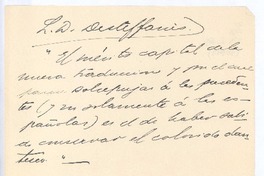 L. D. Desteffanis.
"El mérito capital de la
nueva traducción y por el que
sobrepuja á las preceden-
tes (y no solamente á las es-
pañolas) es el de haber sabi-
do conservar el colorido dan-
tesco" —